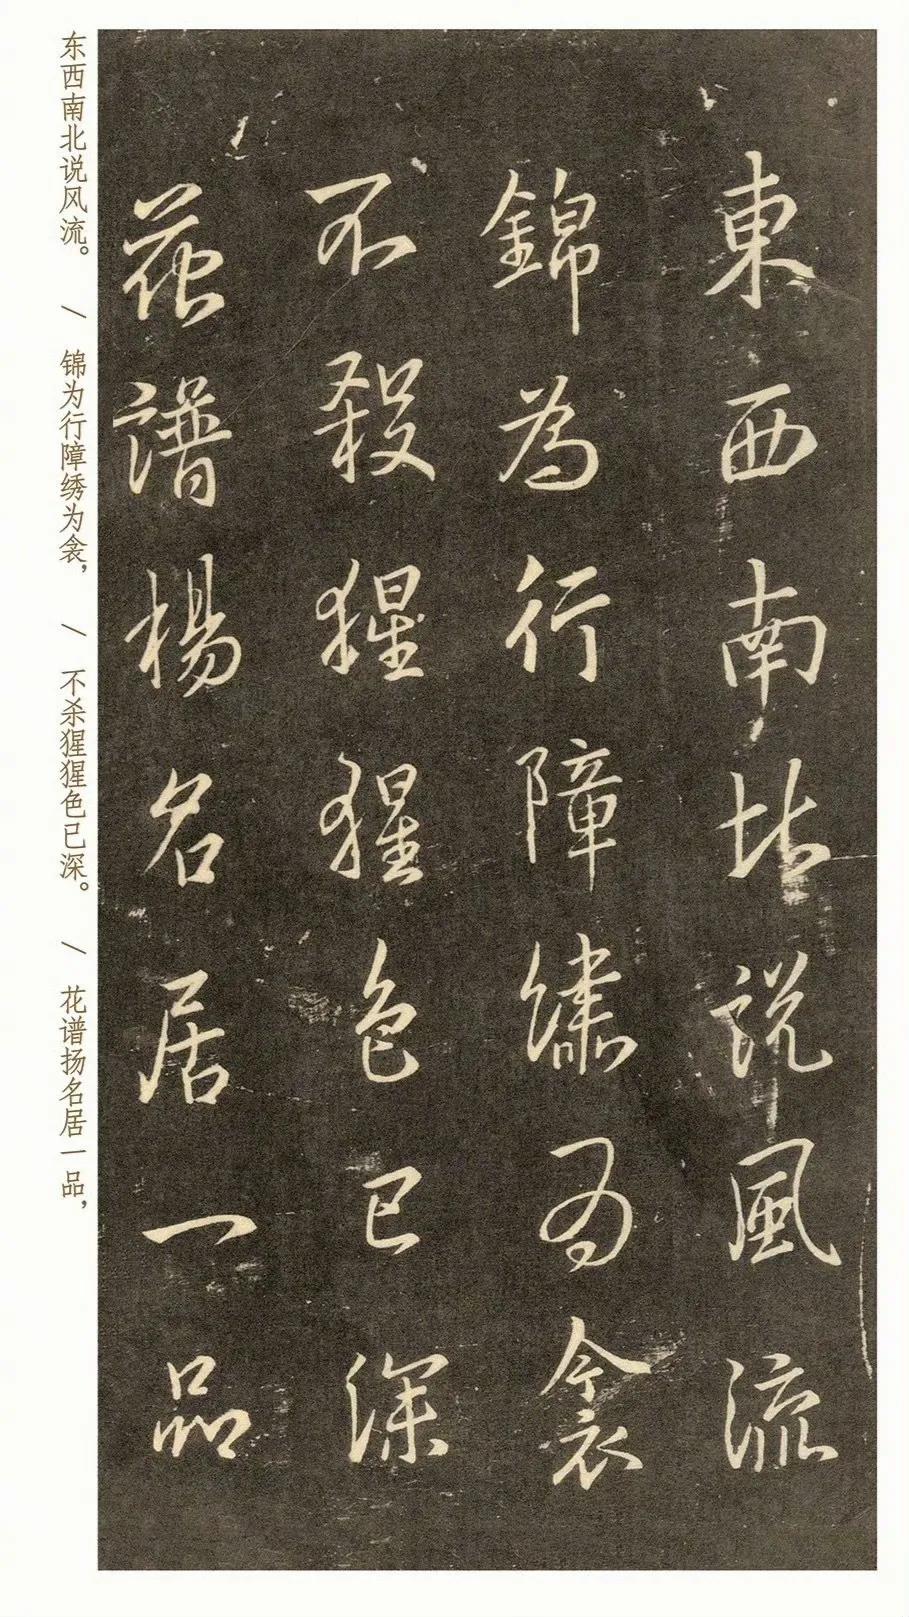 東西南北説風流
錦為行障繡為衾
不殺猩猩色已深
花譜楊名居一品
东西南北说风流。 / 锦为行障绣为衾， / 不杀猩猩色已深。 / 花谱扬名居一品，